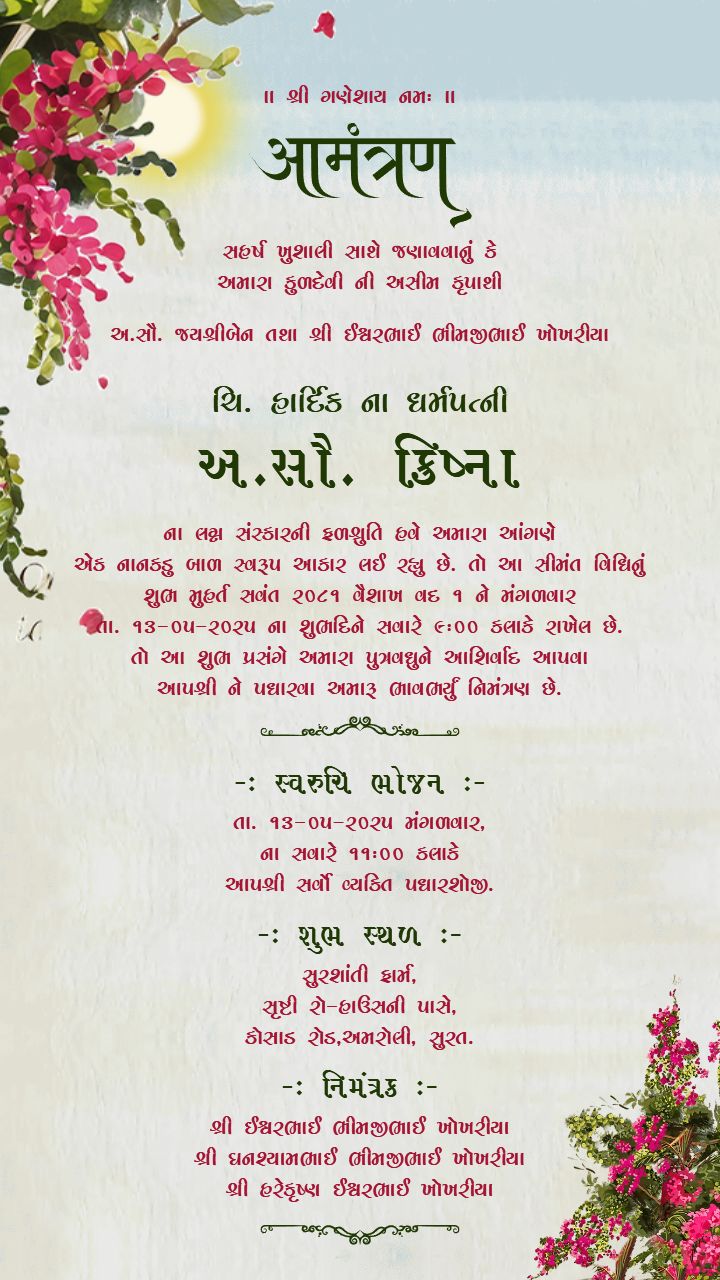 ॥ શ્રી ગણેશાય નમઃ ॥
आमंत्रण
સહર્ષ ખુશાલી સાથે જણાવવાનું કે
અમારા કુળદેવી ની અસીમ કૃપાથી
અ.સૌ. જયશ્રીબેન તથા શ્રી ઈશ્વરભાઈ ભીમજીભાઈ ખોખરીયા
ચિ. હાર્દિક ના ધર્મપત્ની
અ.સૌ. ક્રિષ્ના
ના લગ્ન સંસ્કારની ફળશ્રુતિ હવે અમારા આંગણે
એક નાનકડુ બાળ સ્વરૂપ આકાર લઈ રહ્યુ છે. તો આ સીમંત વિધિનું
શુભ મુહર્ત સવંત ૨૦૮૧ વૈશાખ વદ ૧ ને મંગળવાર
તા. ૧૩-૦૫-૨૦૨૫ ના શુભદિને સવારે ૯:૦૦ કલાકે રાખેલ છે.
તો આ શુભ પ્રસંગે અમારા પુત્રવધુને આશિર્વાદ આપવા
આપશ્રી ને પધારવા અમારૂ ભાવભર્યું નિમંત્રણ છે.
-: સ્વરુચિ ભોજન :-
તા. ૧૩-૦૫-૨૦૨૫ મંગળવાર,
ના સવારે ૧૧:૦૦ કલાકે
આપશ્રી સર્વો વ્યકિત પધારશોજી.
-: શુભ સ્થળ :-
સુરશાંતી ફાર્મ,
સૃષ્ટી રો-હાઉસની પાસે,
કોસાડ રોડ,અમરોલી, સુરત.
-: નિમંત્રક :-
શ્રી ઈશ્વરભાઈ ભીમજીભાઈ ખોખરીયા
શ્રી ઘનશ્યામભાઈ ભીમજીભાઈ ખોખરીયા
શ્રી હરેકૃષ્ણ ઈશ્વરભાઈ ખોખરીયા